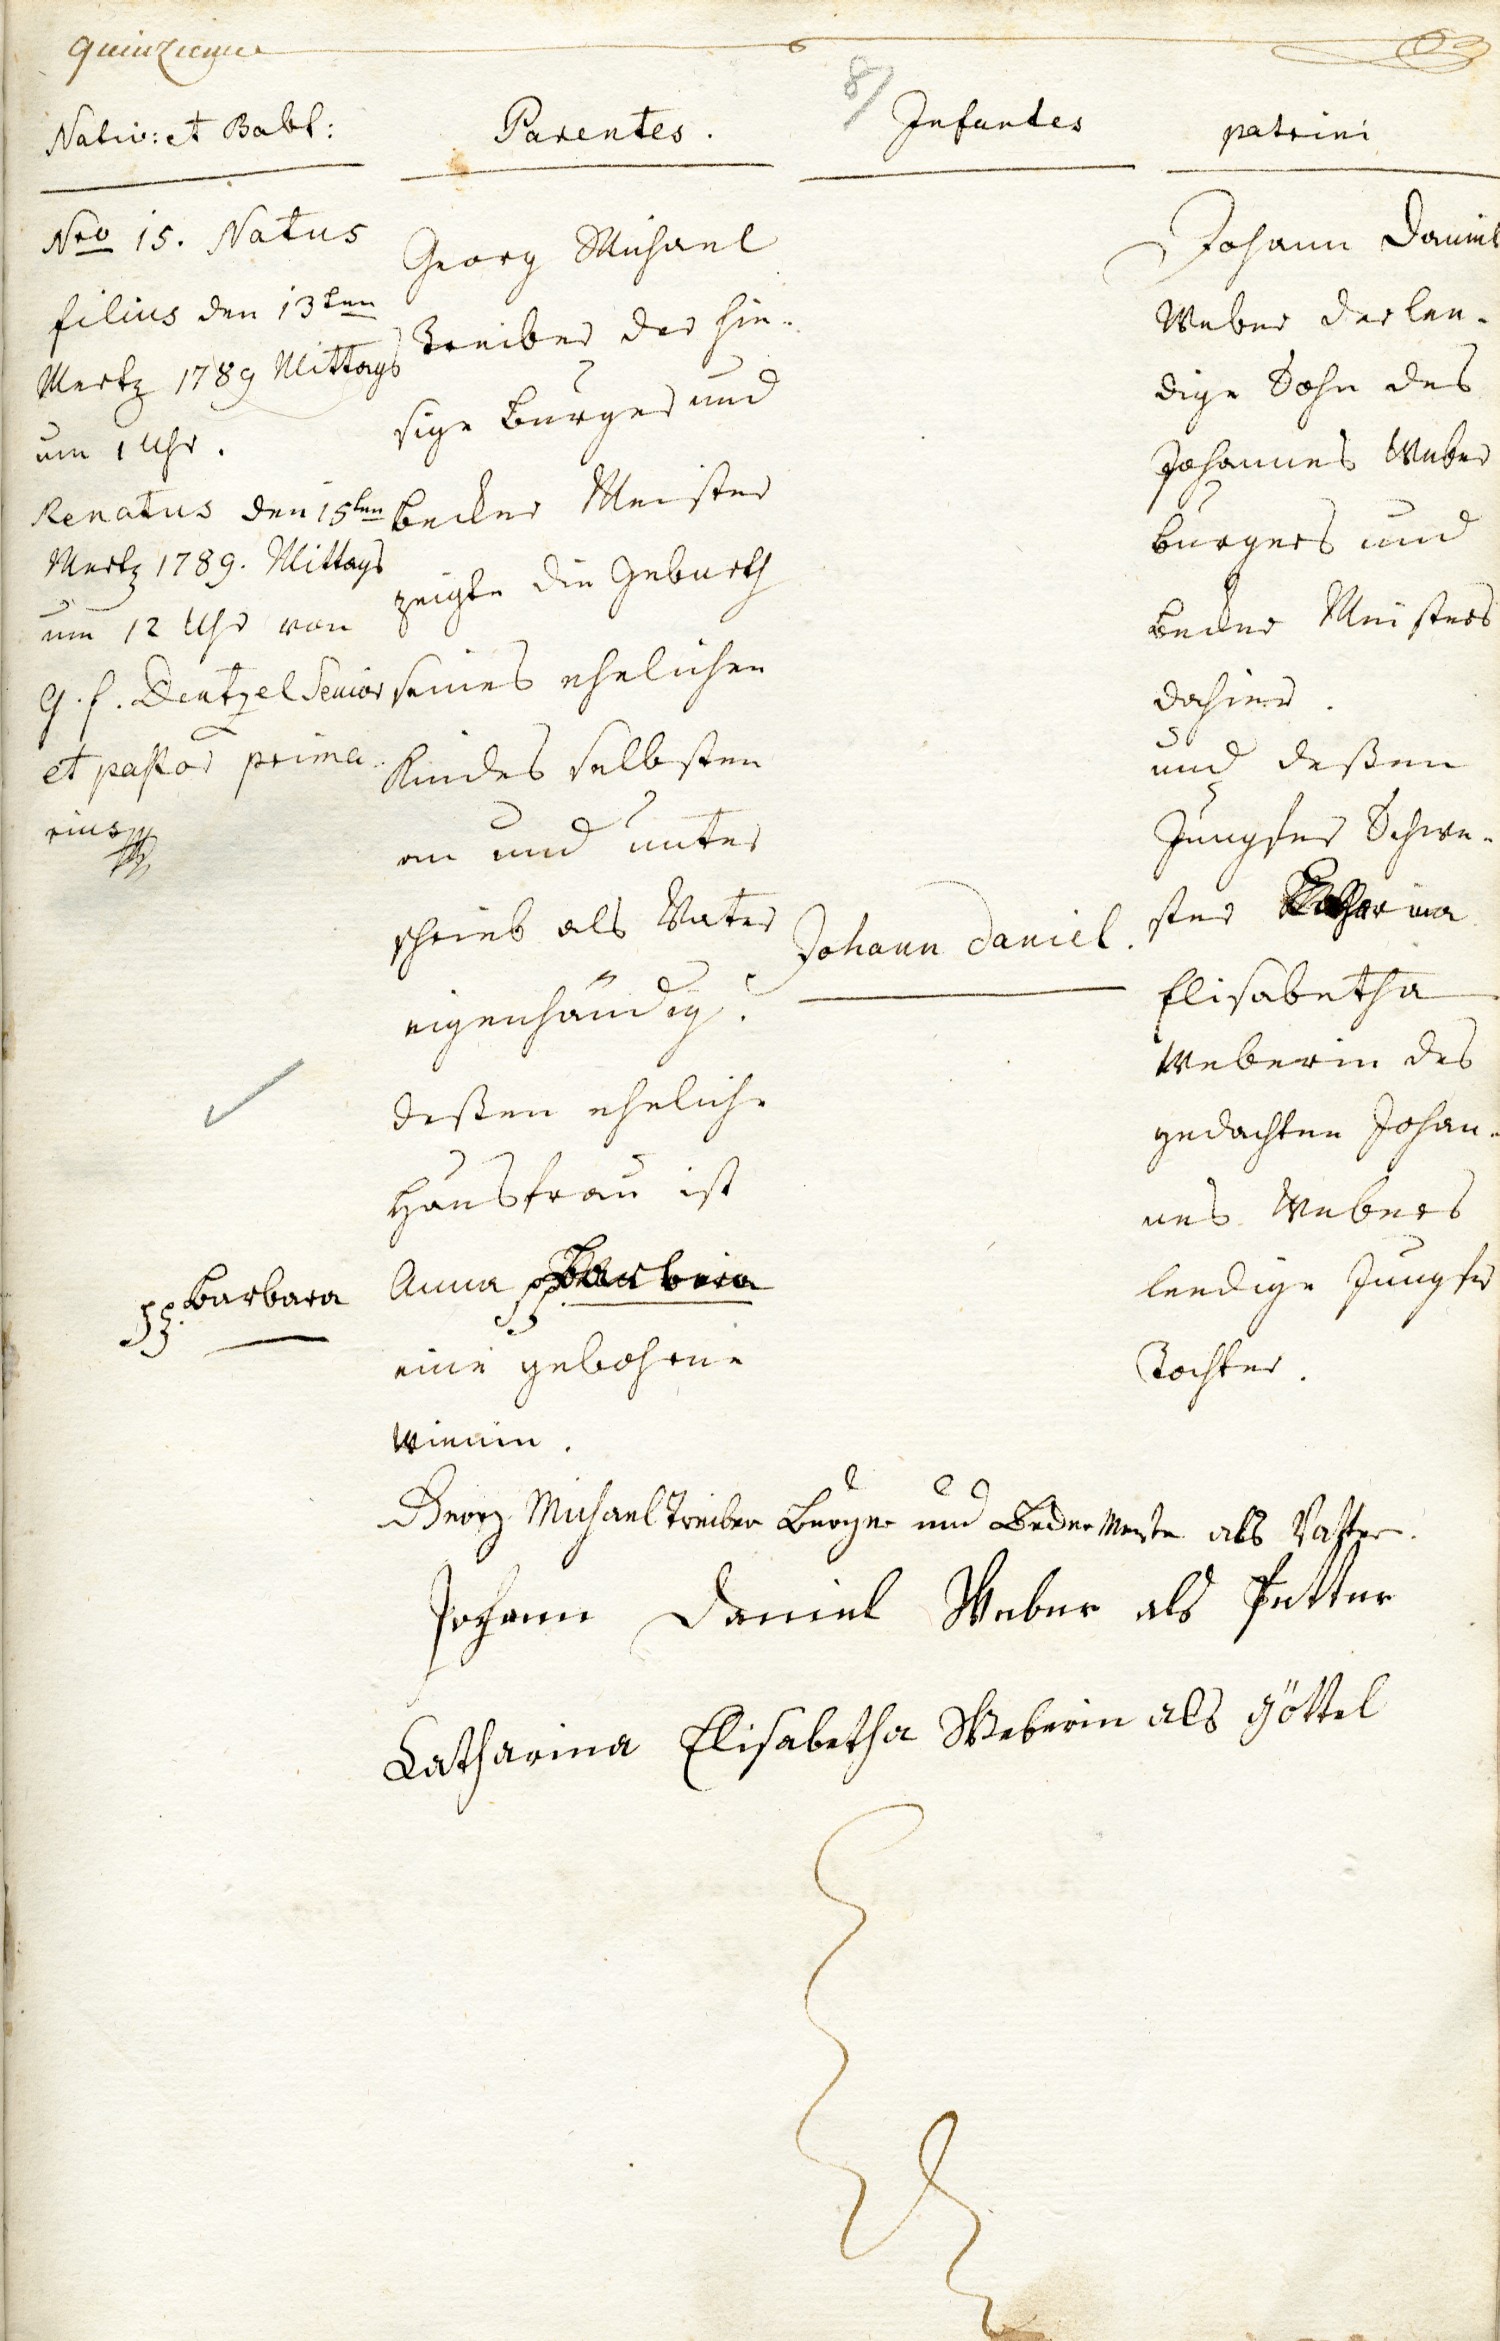 quinzieme
8/
Nativ: et Babt:
Nro 15. Natus
filius den 13ten
Mertz 1789 Mittags
um 1 Uhr.
Renatus den 15ten
Mertz 1789. Mittags
um 12 Uhr von
G. f. Dentzel Senior
et pastor prima-
rius
ss. Barbara
Parentes.
Georg Michael
Treiber der hie-
sige burger und
becker Meister
zeigte die Geburth
seines ehelichen
Kindes selbsten
an und unter
schrieb als Vater
eigenhändig.
deßen eheliche
Haus frau ist
Anna ss. Barbara
eine gebohrne
Infantes
Johann Daniel.
patrini
Johann Daniel
Weber der lee-
dige Sohn des
Johannes Weber
burgers und
becker Meisters
dahier.
und deßen
Jungfer Schwe-
ster Catharina
Elisabetha
Weberin des
gedachten Johan-
nes Webers
leedige Jungfer
Tochter.
Georg Michael Treiber Burger und Becker Meister als Vatter.
Johann Daniel Weber als Petter
Catharina Elisabetha Weberin als göttel